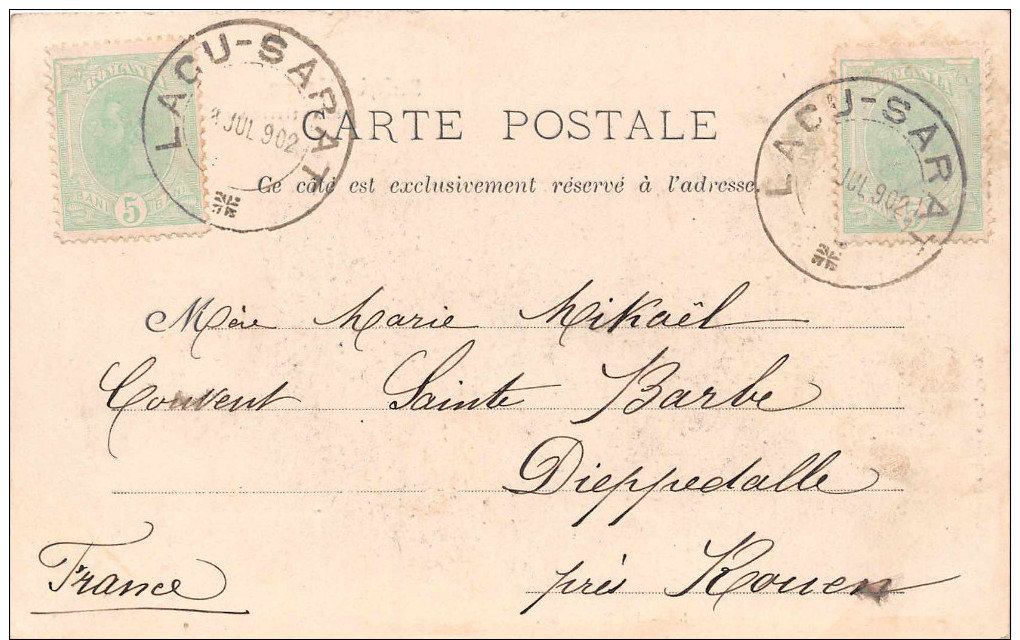 ROMANIA
BANI 5 BANI
LACU-SARAT
JUL 902
ROMANIA
LACU-SARAT
JUL 902
CARTE POSTALE
Ce côté est exclusivement réservé à l'adresse.
Mère Marie Mikaël
Couvent Sainte Barbe
Dieppedalle
près Rouen
France